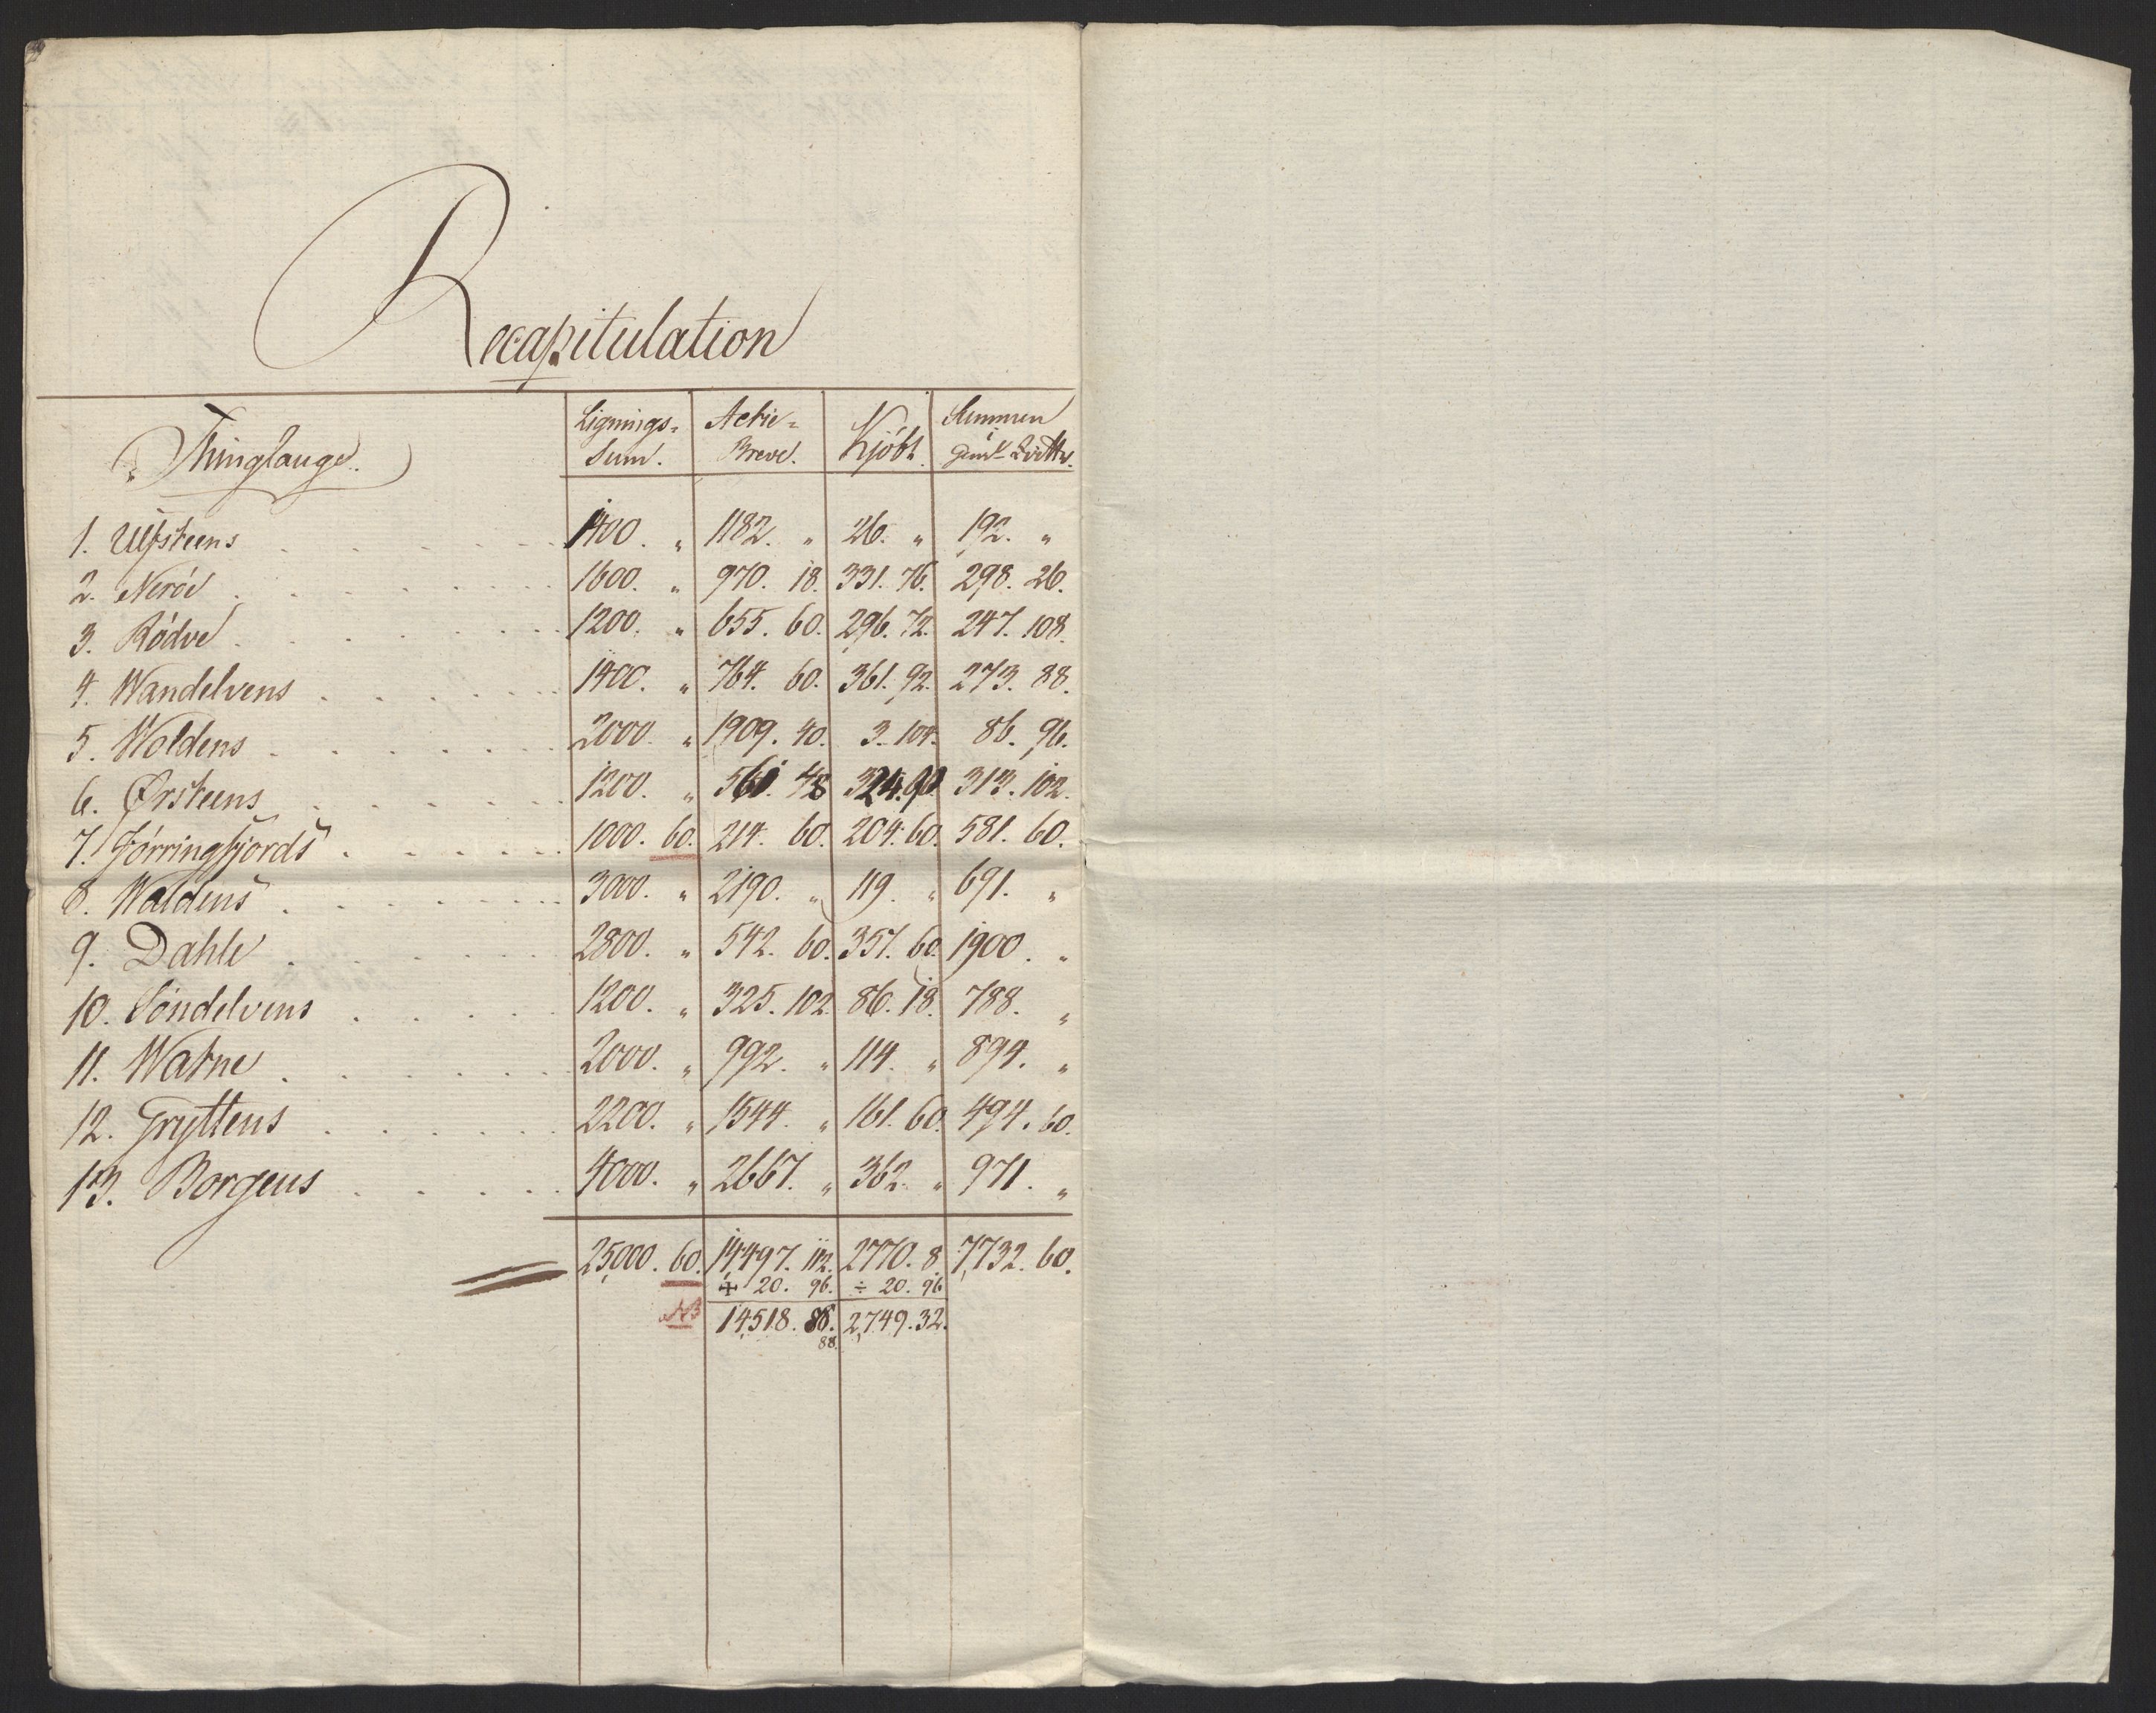 Recapitulation
Thinglauge. Lignings= Sum. Actie= Breve. Kjöbt. Summen
1. Ulfsteens 1400. „ 1182. „ 26. „ 192. „
2. Neröe 1600. „ 970. 18. 331. 76. 298. 26.
3. Rödve 1200. „ 655. 60. 296. 72. 247. 108.
4. Wandelvens 1400. „ 764. 60. 361. 92. 273. 88.
5. Woldens 2000. „ 1909. 40. 3. 104. 86. 96.
6. Ørsteens 1200. „ 561. 48 324. 90 313. 102.
7. Jörringfjords 1000. 60. 214. 60. 204. 60. 581. 60.
8. Waldens 3000. „ 2190. „ 119. „ 691. „
9. Dahle 2800. „ 542. 60. 357. 60. 1900. „
10. Söndelvens 1200. „ 325. 102. 86. 18. 788. „
11. Watne 2000. „ 992. „ 114. „ 894. „
12. Gryttens 2200. „ 1544. „ 161. 60. 494. 60.
13. Borgens 4000. „ 2667. „ 362. „ 971. „
25,000. 60. 14,497. 112. 2770. 8. 7,732. 60.
+ 20. 96. ÷ 20. 96
NB 14,518. 88. 2,749. 32.
88.